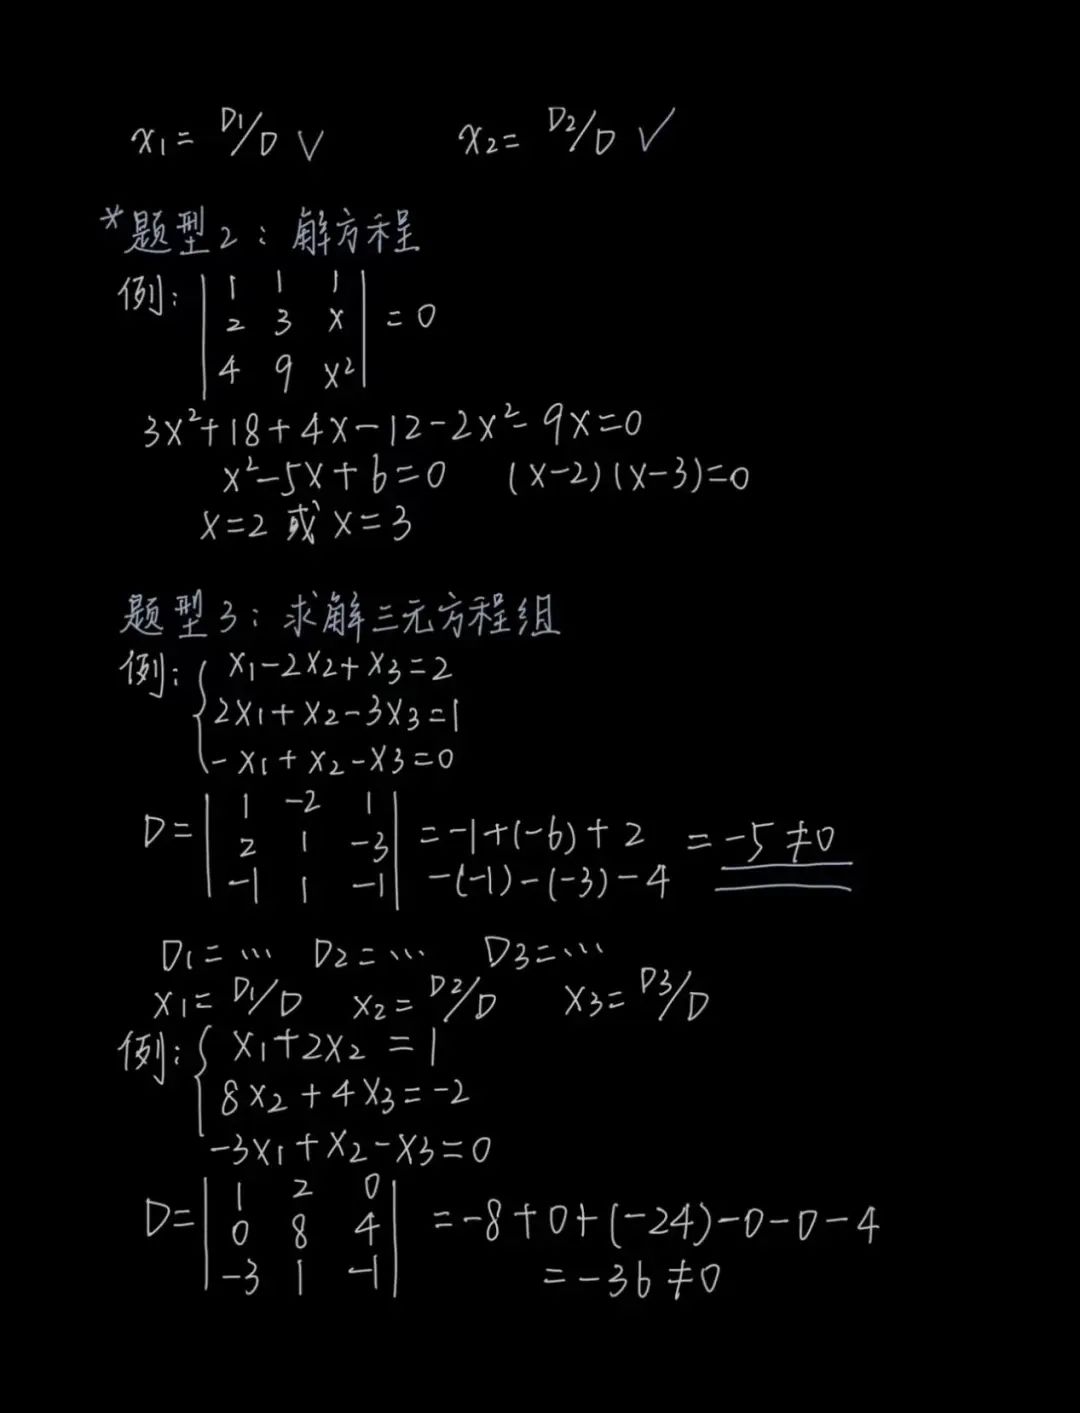 x₁= D₁/D √ x₂= D₂/D √
*题型2：解方程
例: | 1 1 1 |
| 2 3 x | = 0
| 4 9 x² |
3x²+18+4x-12-2x²-9x=0
x²-5x+6=0 (x-2)(x-3)=0
x=2 或 x=3
题型3：求解三元方程组
例: { x₁-2x₂+x₃=2
2x₁+x₂-3x₃=1
-x₁+x₂-x₃=0
D= | 1 -2 1 |
| 2 1 -3 | =-1+(-6)+2 =-5≠0
| -1 1 -1 | -(-1)-(-3)-4
D₁=… D₂=… D₃=…
x₁=D₁/D x₂=D₂/D x₃=D₃/D
例: { x₁+2x₂=1
8x₂+4x₃=-2
-3x₁+x₂-x₃=0
D= | 1 2 0 |
| 0 8 4 | =-8+0+(-24)-0-0-4
| -3 1 -1 | =-36≠0